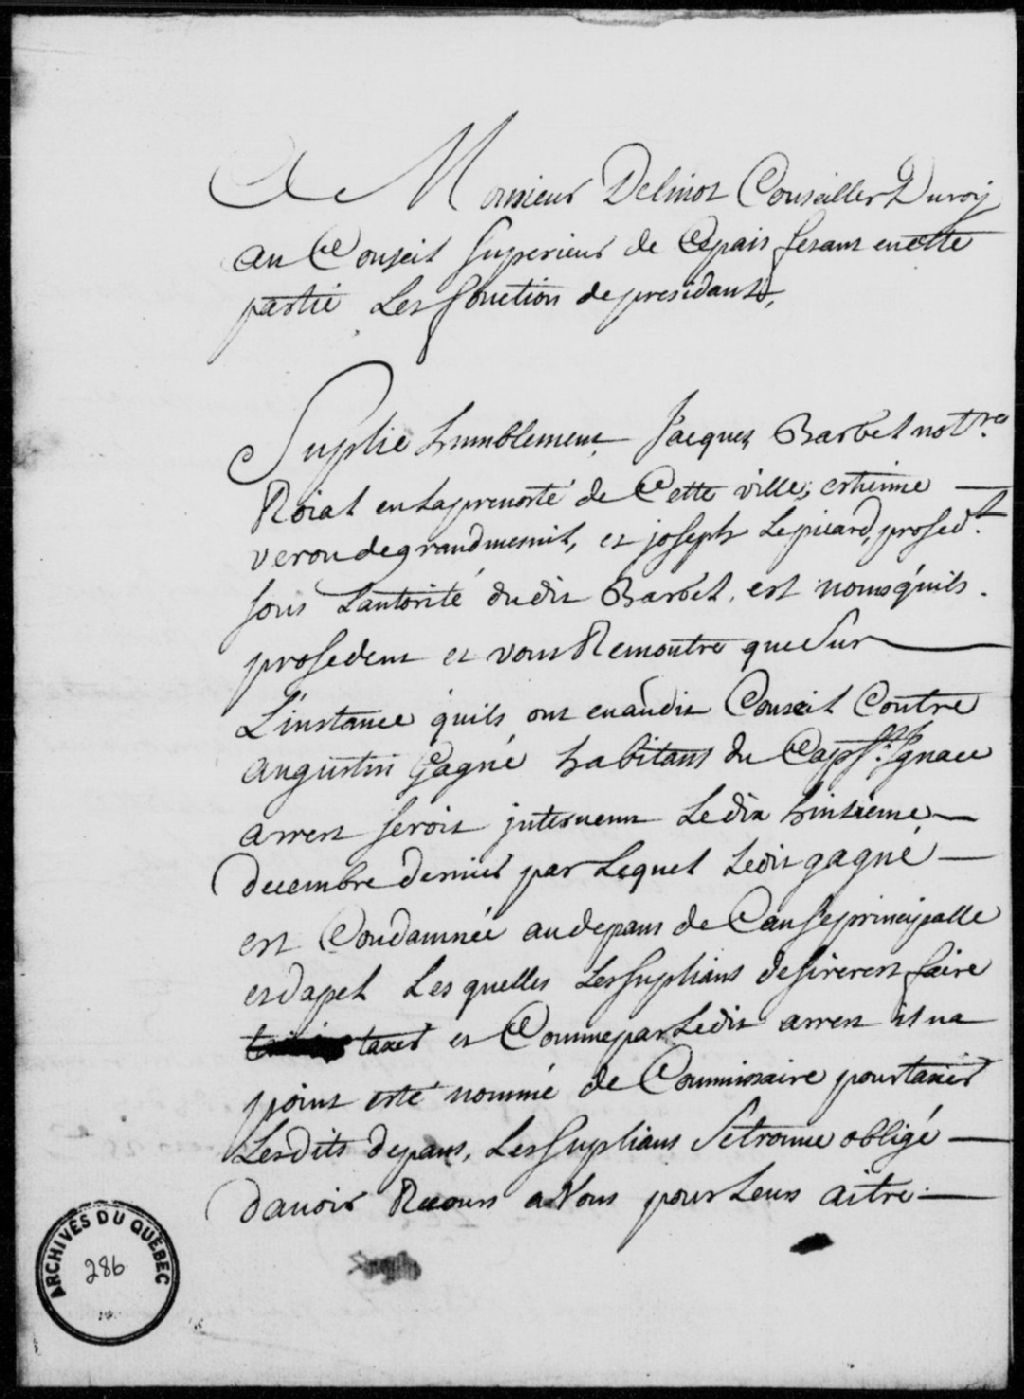 A Monsieur Delinot Conseiller Duroy
au Conseil superieur de Cepais fesant encette
partie Les fonction depresidant,
Suplie humblement Jacques Barbel nott.re
Roial enlaprevosté de Cette ville, estienne
verondegrandmesnil, et joseph Lepicard, prosed.t
sous Lautorité dudit Barbel, est noms quils
prosedent et vous Remontre que Sur
L'instance quils ont enaudit Conseil Contre
augustin Gagné habitans du Cap St. Ignace
arrest seroit intervenu Ledix huitieme
decembre dernier par Lequel Ledit gagné
est Condamnée audepans de Cause principalle
et dapel Les quelles Lessuplians desirerest faire
taxer et Comme par Ledit arrest il na
point esté nommé de Commissaire pour taxer
Lesdits depans, Lessuplians Setrouve obligé
davoir Recours a Vous pour Leurs aitre
ARCHIVES DU QUÉBEC
286